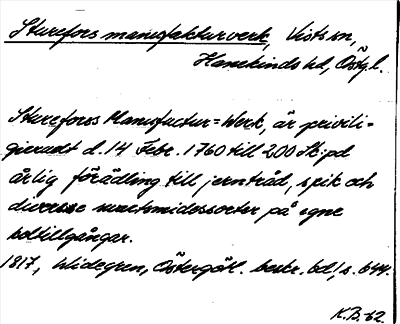 Sturefors manufakturverk, Vists sn,
Hanekinds hd, Östg.l.
Stureforss Manufactur=Werk, är privili-
gieradt d. 14 Febr. 1760 till 200 Sk:pd
årlig förädling till jerntråd, spik och
diverse svartsmidessorter på egne
koltillgångar.
1817, Widegren, Östergötl. beskr. bd 1, s. 644.
K.B. 62.